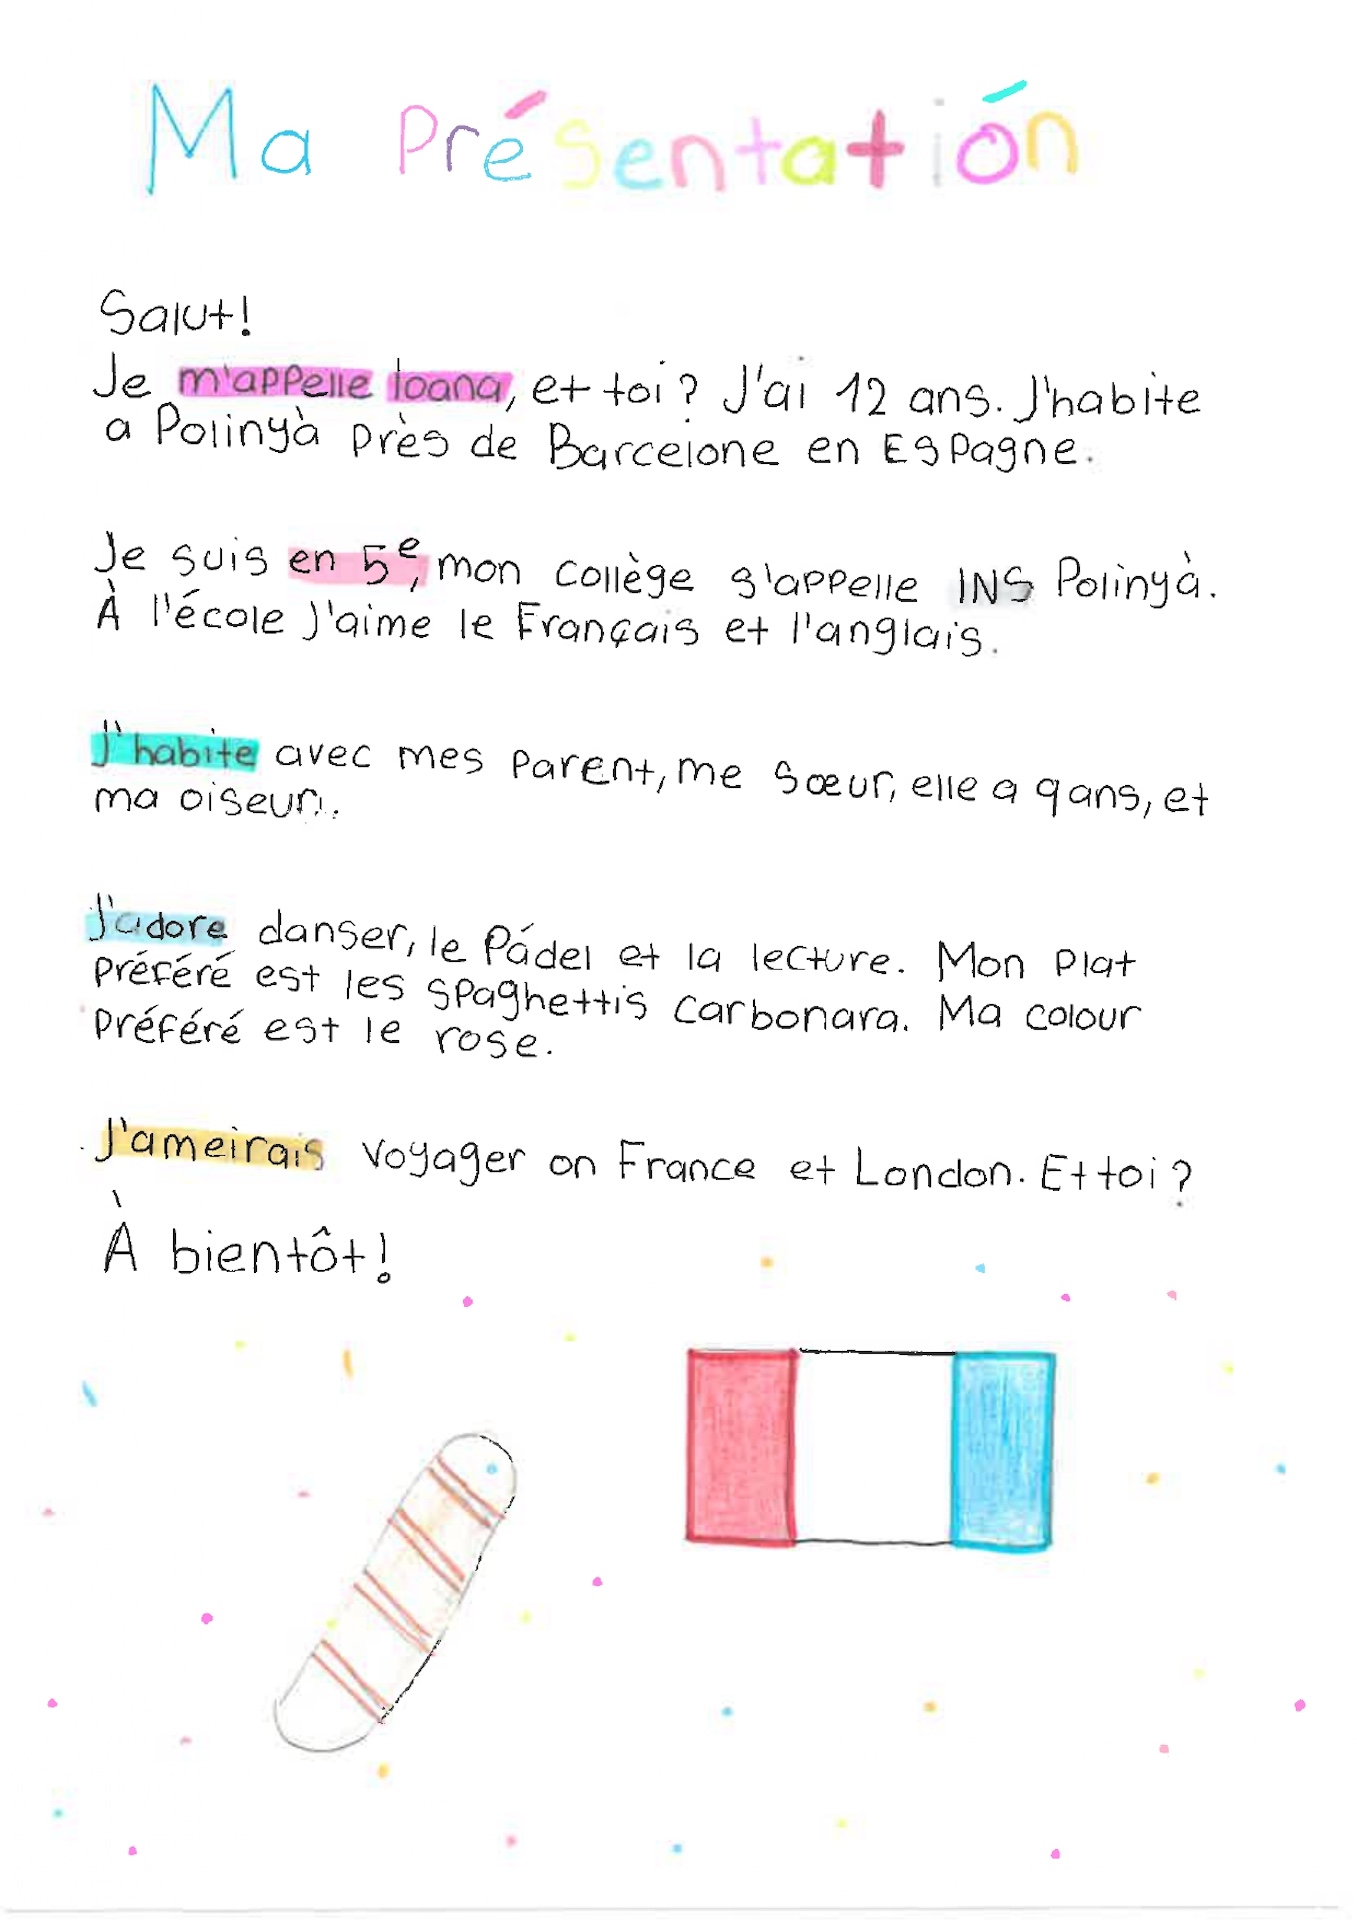 Ma Présentatión
Salut!
Je m'appelle Ioana, et toi? J'ai 12 ans. J'habite
a Polinyà près de Barcelone en Espagne.
Je suis en 5e, mon collège s'appelle INS Polinyà.
À l'école j'aime le Français et l'anglais.
J'habite avec mes parent, me sœur, elle a 9 ans, et
ma oiseur.
J'adore danser, le Pádel et la lecture. Mon plat
préféré est les spaghettis carbonara. Ma colour
préféré est le rose.
J'ameirais voyager on France et London. Et toi?
À bientôt!